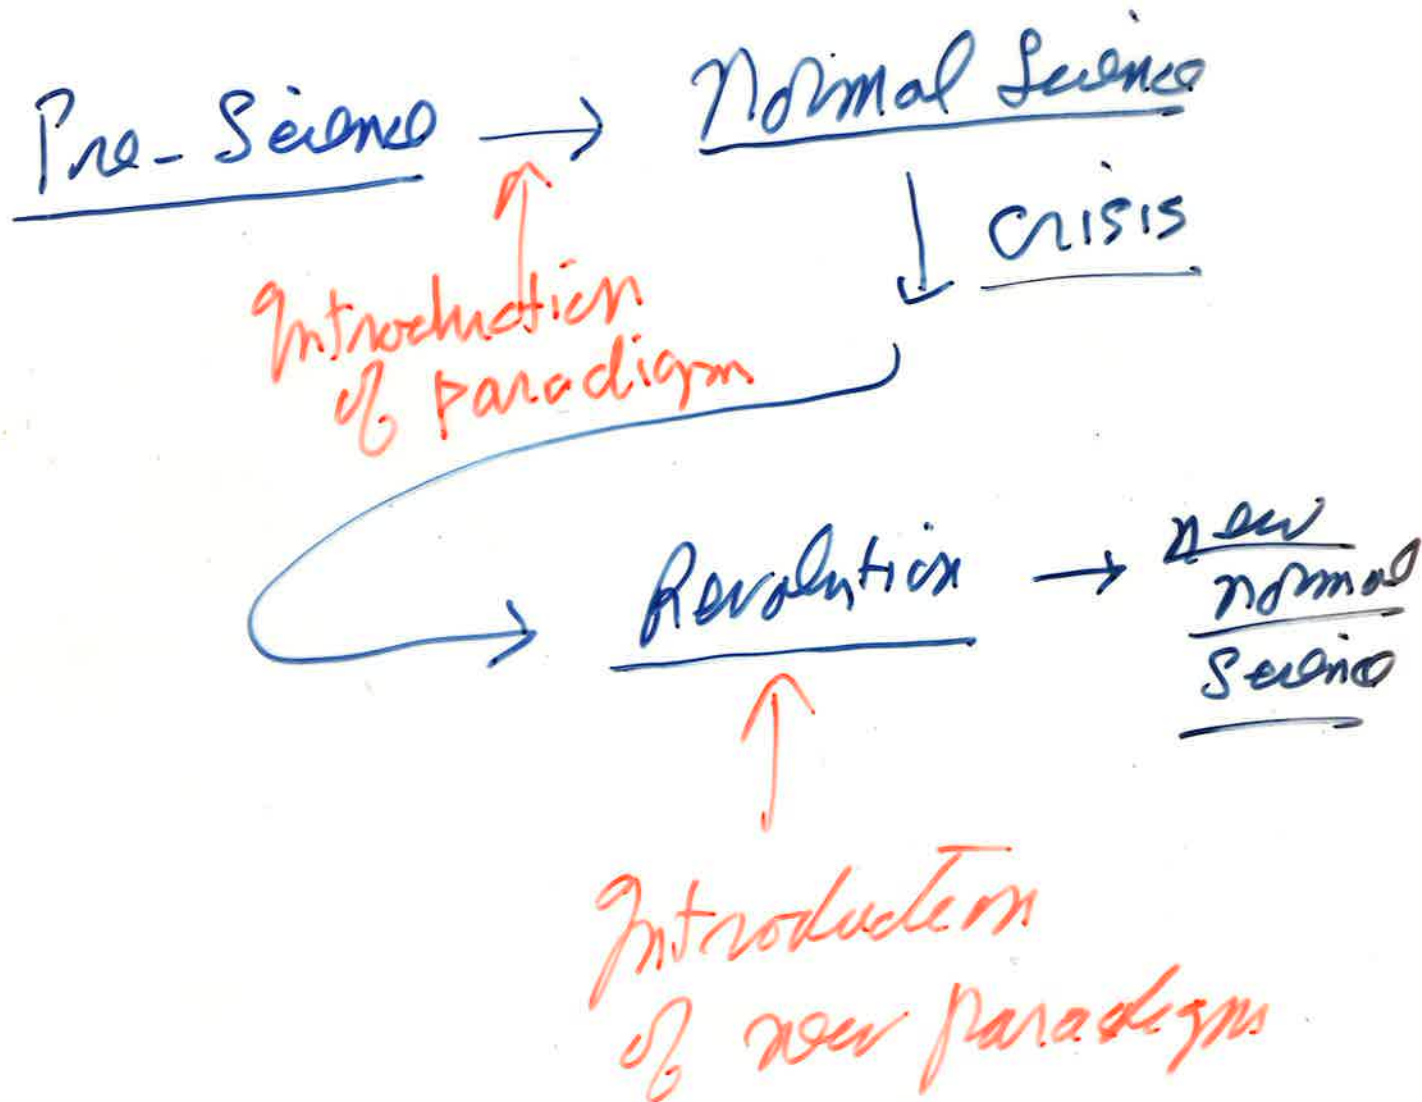 Pre-Science → Normal Science
↓ crisis
Introduction
of paradigm
Revolution → new
normal
Science
Introduction
of new paradigm